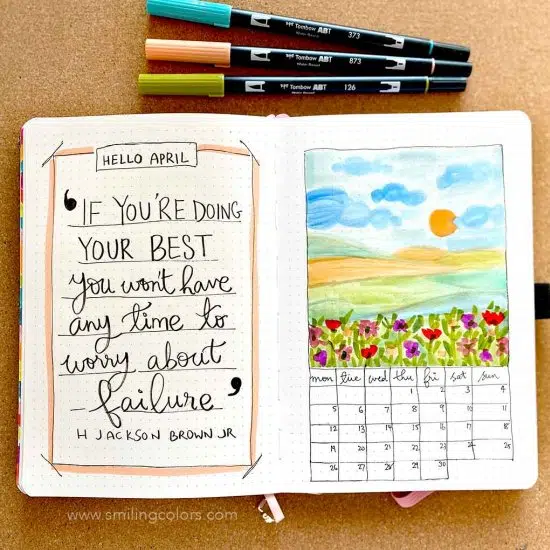 373
Tombow ABT
873
Tombow ABT
126
Tombow ABT
HELLO APRIL
‘IF YOU'RE DOING
YOUR BEST
you won't have
any time to
worry about
failure’
H JACKSON BROWN JR
mon tue wed thu fri sat sun
1 2 3 4
5 6 7 8 9 10 11
12 13 14 15 16 17 18
19 20 21 22 23 24 25
26 27 28 29 30
www.smilingcolors.com